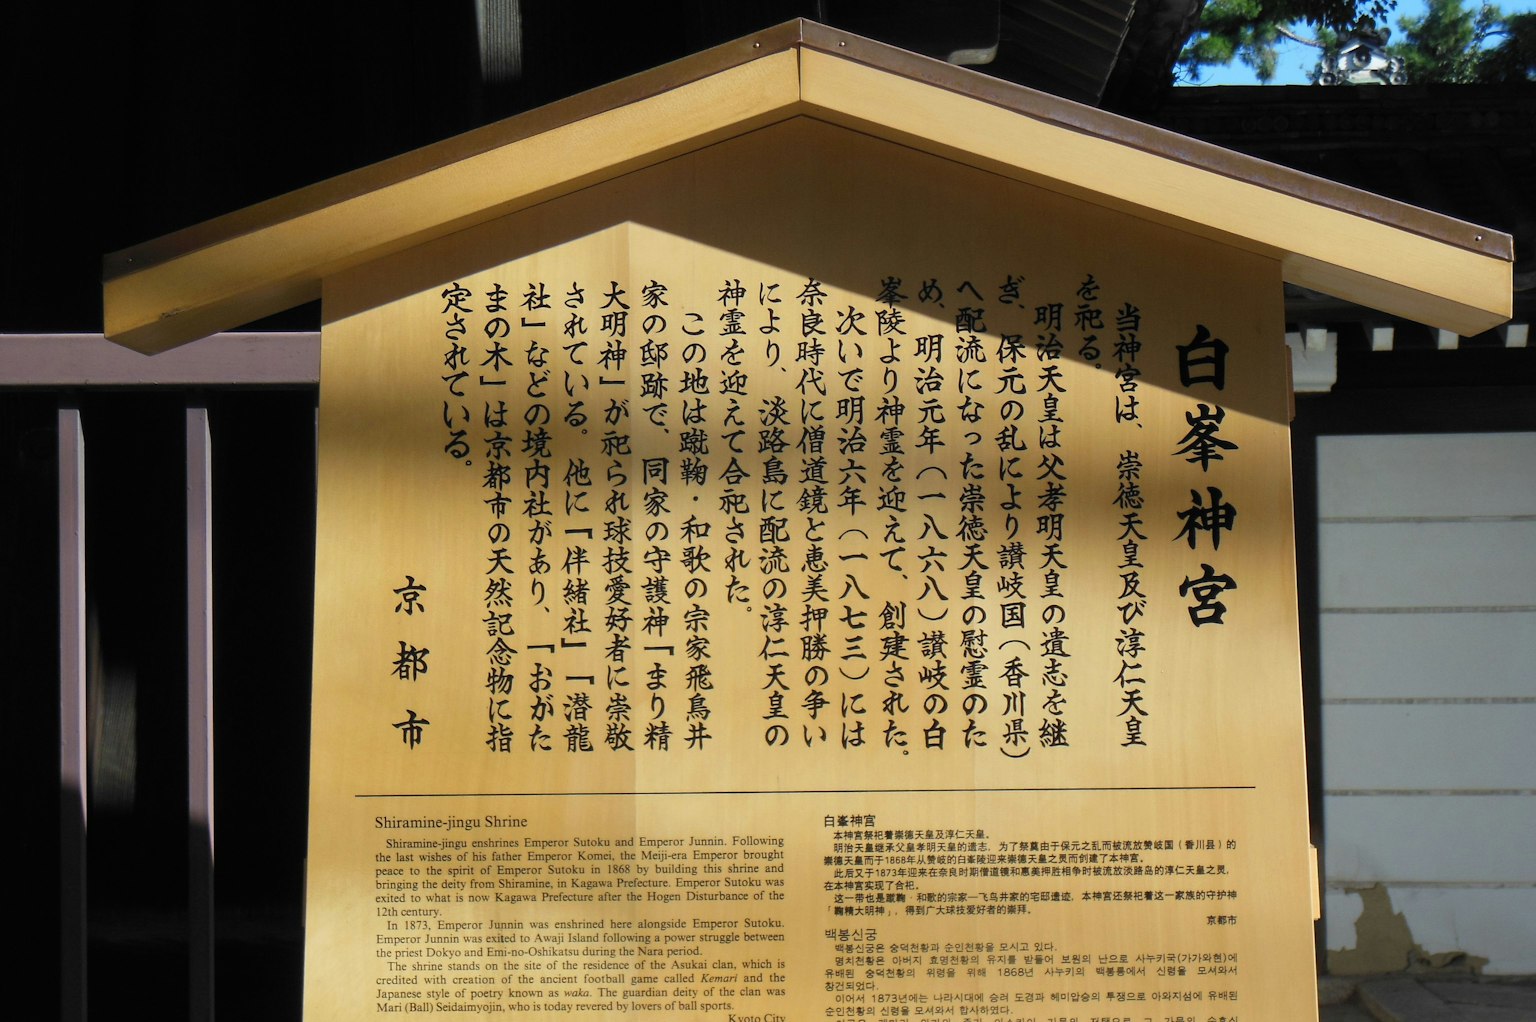 白峯神宮
当神宮は、崇徳天皇及び淳仁天皇
を祀る。
明治天皇は父孝明天皇の遺志を継
ぎ、保元の乱により讃岐国（香川県）
へ配流になった崇徳天皇の慰霊のた
め、明治元年（一八六八）讃岐の白
峯陵より神霊を迎えて、創建された。
次いで明治六年（一八七三）には
奈良時代に僧道鏡と恵美押勝の争い
により、淡路島に配流の淳仁天皇の
神霊を迎えて合祀された。
この地は蹴鞠・和歌の宗家飛鳥井
家の邸跡で、同家の守護神「まり精
大明神」が祀られ球技愛好者に崇敬
されている。他に「伴緒社」「潜龍
社」などの境内社があり、「おがた
まの木」は京都市の天然記念物に指
定されている。
京都市
Shiramine-jingu Shrine
Shiramine-jingu enshrines Emperor Sutoku and Emperor Junnin. Following
the last wishes of his father Emperor Komei, the Meiji-era Emperor brought
peace to the spirit of Emperor Sutoku in 1868 by building this shrine and
bringing the deity from Shiramine, in Kagawa Prefecture. Emperor Sutoku was
exited to what is now Kagawa Prefecture after the Hogen Disturbance of the
12th century.
In 1873, Emperor Junnin was enshrined here alongside Emperor Sutoku.
Emperor Junnin was exited to Awaji Island following a power struggle between
the priest Dokyo and Emi-no-Oshikatsu during the Nara period.
The shrine stands on the site of the residence of the Asukai clan, which is
credited with creation of the ancient football game called Kemari and the
Japanese style of poetry known as waka. The guardian deity of the clan was
Mari (Ball) Seidaimyojin, who is today revered by lovers of ball sports.
Kyoto City
白峯神宮
本神宫祭祀着崇德天皇及淳仁天皇。
明治天皇继承父皇孝明天皇的遗志，为了祭奠由于保元之乱而被流放赞岐国（香川县）的
崇德天皇而于1868年从赞岐的白峯陵迎来崇德天皇之灵而创建了本神宫。
此后又于1873年迎来在奈良时期僧道镜和惠美押胜相争时被流放淡路岛的淳仁天皇之灵，
在本神宫实现了合祀。
这一带也是蹴鞠·和歌的宗家一飞鸟井家的宅邸遗迹，本神宫还祭祀着这一家族的守护神
「鞠精大明神」，得到广大球技爱好者的崇拜。
京都市
백봉신궁
백봉신궁은 숭덕천황과 순인천황을 모시고 있다.
명치천황은 아버지 효명천황의 유지를 받들어 보원의 난으로 사누키국(가가와현)에
유배된 숭덕천황의 위령을 위해 1868년 사누키의 백봉릉에서 신령을 모셔와서
창건되었다.
이어서 1873년에는 나라시대에 승려 도경과 헤미압승의 투쟁으로 아와지섬에 유배된
순인천황의 신령을 모셔와서 합사하였다.